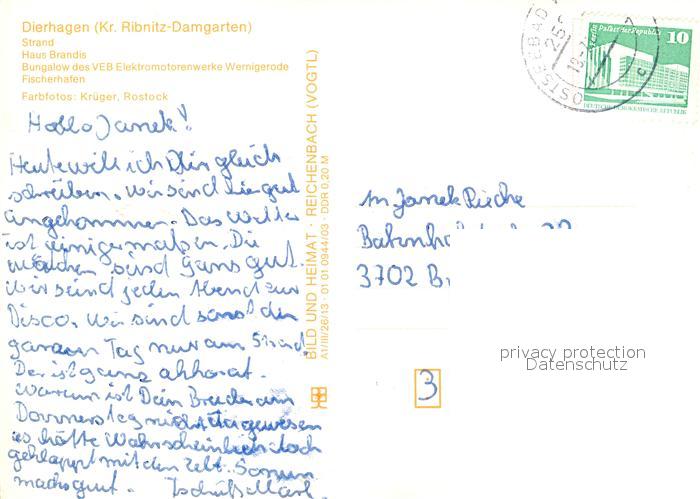 Dierhagen (Kr. Ribnitz-Damgarten)
Strand
Haus Brandis
Bungalow des VEB Elektromotorenwerke Wernigerode
Fischerhafen
Farbfotos: Krüger, Rostock
Hallo Janek!
Heute will ich Dir gleich
schreiben. Wir sind hier gut
angekommen. Das Wetter
ist einigermaßen. Die
Mädchen sind ganz gut.
Wir seind jeden Abend zur
Disco. Wir sind sonst den
ganzen Tag nur am Strand.
Der ist ganz
Warum ist Dein Bruder am
Donnerstag nicht da gewesen
es hätte Wahrscheinlich doch
geklappt mit den Zelt. Sonun
machs gut. Tschüß
BILD UND HEIMAT · REICHENBACH (VOGTL)
A1/III/26/13 · 01 01 0944/03 · DDR 0,20 M
OSTSEEBAD
Palast der Republik
10
DEUTSCHE DEMOKRATISCHE REPUBLIK
Janek
3702 B
privacy protection
Datenschutz
3